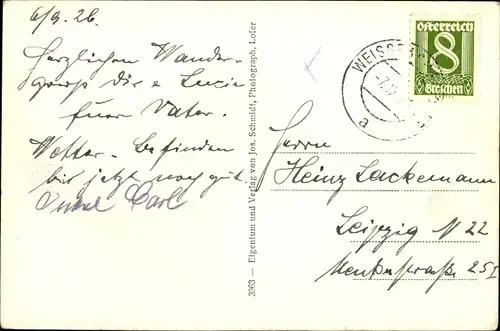 6/9.26.
Herzlichen Wander-
gruß dir & Lucie
Euer Vater.
Wetter- Befinden
bis jetzt noch gut
Onkel Carl
3363 — Eigentum und Verlag von Jos. Schmidt, Photograph, Lofer
WEISSB
a
Österreich
8
Groschen
Herrn
Heinz Lackemann
Leipzig N 22